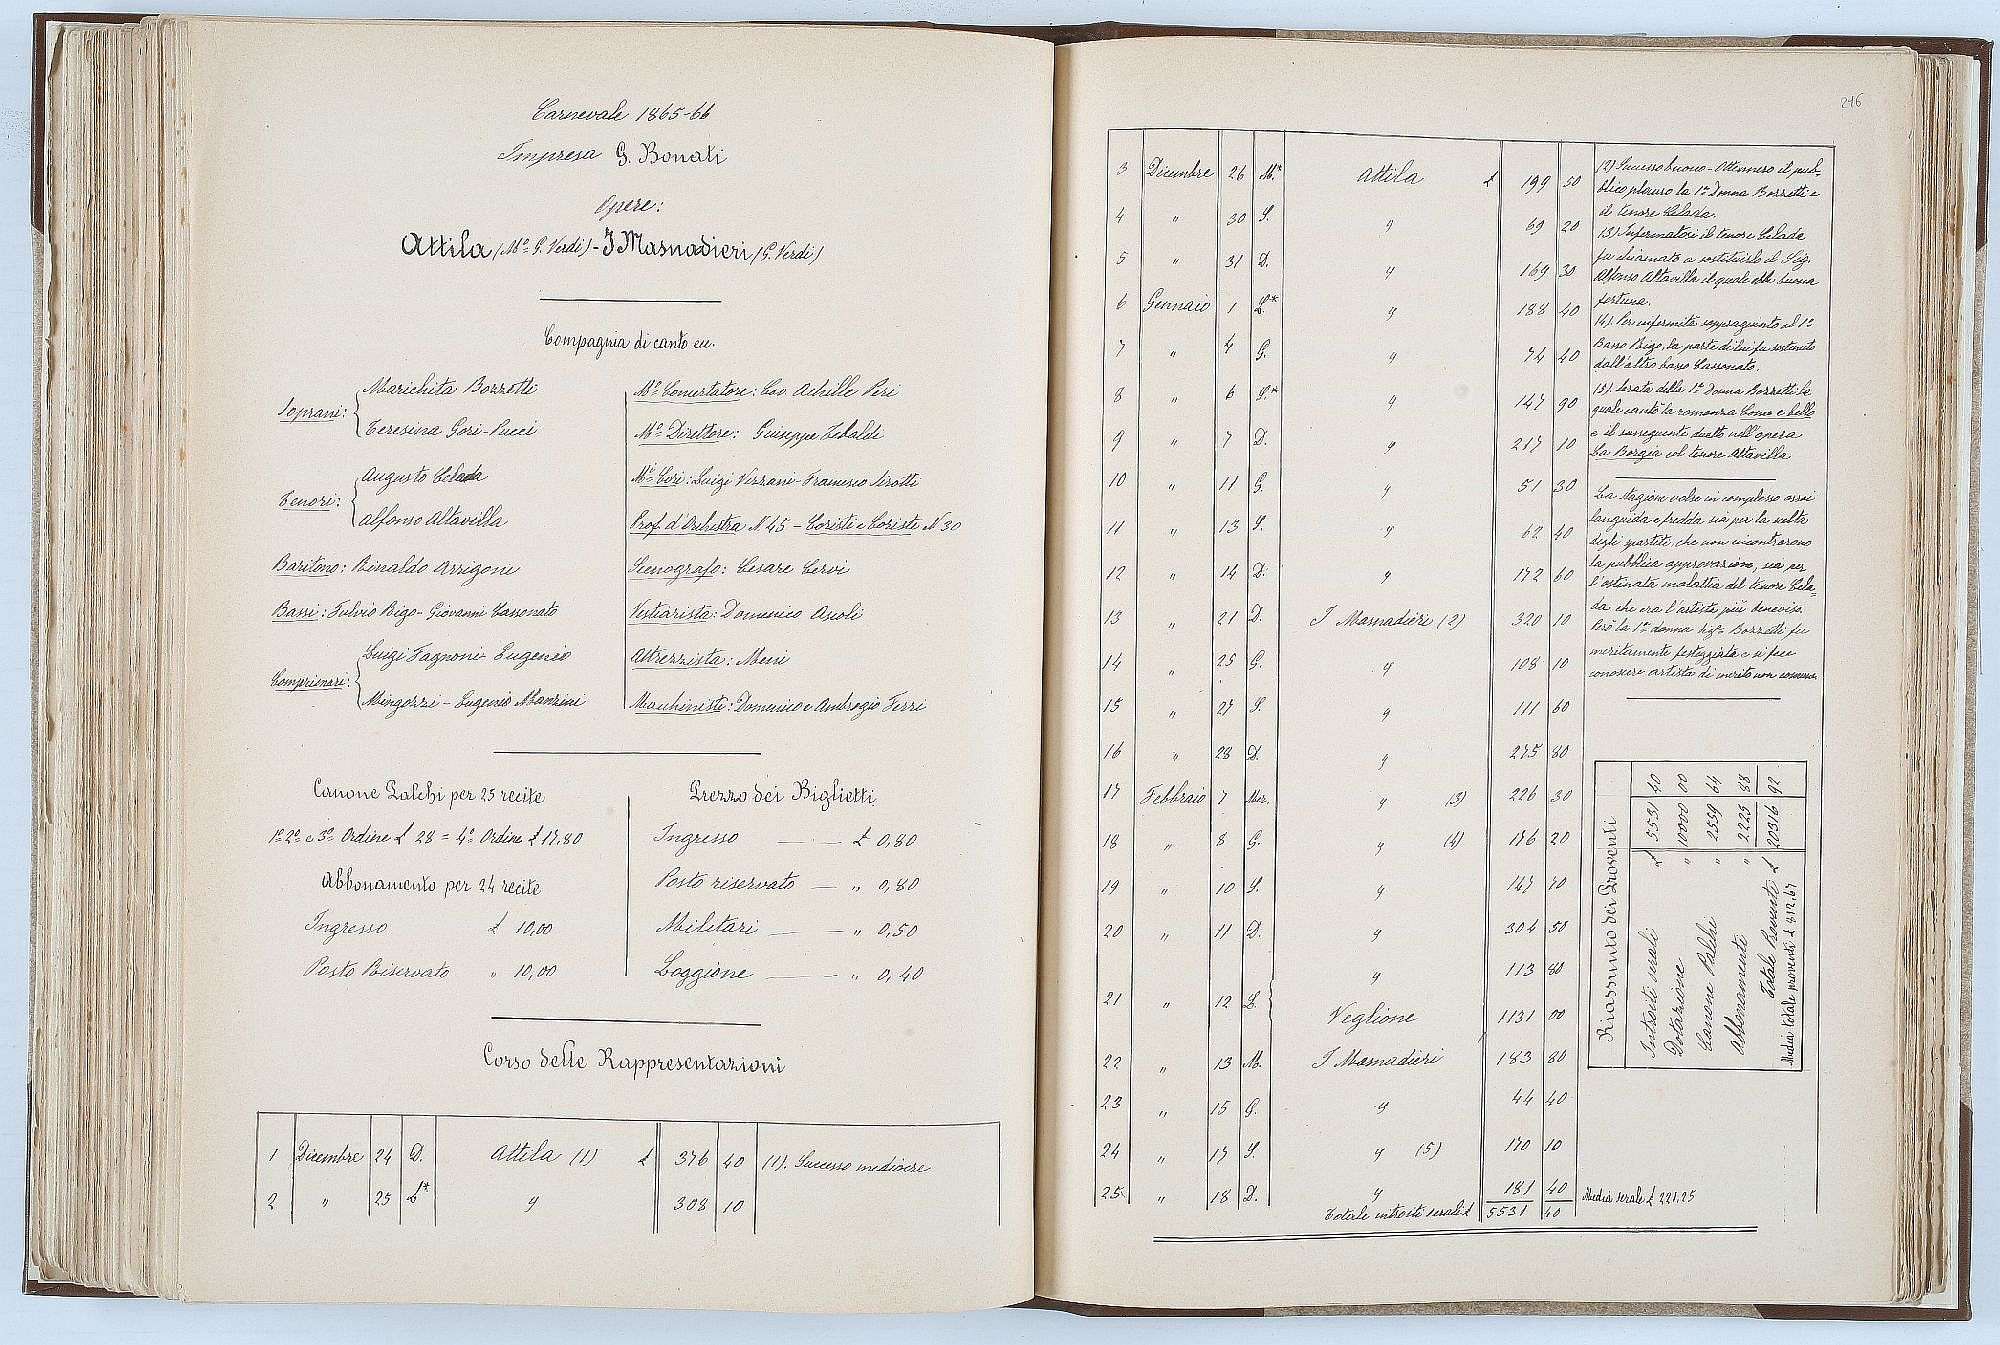 Carnevale 1865-66
Impresa G. Bonati
Opere:
Attila (Mº G. Verdi) - I Masnadieri (G. Verdi)
Compagnia di canto ecc.
Soprani: Marichita Bozzetti
Teresina Gori-Pucci
Tenori: Augusto Celada
Alfonso Altavilla
Baritono: Rinaldo Arrigoni
Bassi: Fulvio Rigo - Giovanni Cassonato
Comprimari: Luigi Fagnoni - Eugenio
Mingozzi - Eugenio Manzini
Mº Concertatore: Cav. Achille Peri
Mº Direttore: Giuseppe Tebaldi
Mº Cori: Luigi Vezzani - Francesco Sirotti
Prof. d'Orchestra N. 45 - Coristi e Coriste N. 30
Scenografo: Cesare Cervi
Vestiarista: Domenico Ascoli
Attrezzista: Meni
Macchiniste: Domenico e Ambrogio Ferri
Canone Palchi per 25 recite
1º 2º e 3º Ordine £ 28 = 4º Ordine £ 17,80
Abbonamento per 24 recite
Ingresso £ 10,00
Posto Riservato " 10,00
Prezzo dei Biglietti
Ingresso — — £ 0,80
Posto riservato — " 0,80
Militari — — " 0,50
Loggione — — " 0,40
Corso delle Rappresentazioni
1 Dicembre 24 D. Attila (1) £ 376 40 (1). Successo mediocre
2 " 25 L* " 308 10
246
3 Dicembre 26 M.* Attila £ 199 50
4 " 30 S. " 69 20
5 " 31 D. " 169 30
6 Gennaio 1 L* " 188 40
7 " 4 G. " 74 40
8 " 6 S.* " 147 90
9 " 7 D. " 217 10
10 " 11 G. " 51 30
11 " 13 S. " 62 40
12 " 14 D. " 172 60
13 " 21 D. I Masnadieri (2) 320 10
14 " 25 G. " 108 10
15 " 27 S. " 111 60
16 " 28 D. " 275 80
17 Febbraio 7 Mer. " (3) 226 30
18 " 8 G. " (4) 176 20
19 " 10 S. " 147 70
20 " 11 D. " 304 50
21 " 12 L. " 113 80
Veglione 1131 00
22 " 13 M. I Masnadieri 183 80
23 " 15 G. " 44 40
24 " 17 S. " (5) 170 10
25 " 18 D. " 181 40
Totale introiti serali £ 5531 40
Media serale £ 221.25
(2) Successo buono - Ottennero il pub-
blico plauso la 1ª Donna Bozzetti e
il tenore Celada.
(3) Infermatosi il tenore Celada
fu chiamato a sostituirlo il Sig.
Alfonso Altavilla il quale ebbe buona
fortuna.
(4). Per infermità sopraggiunta al 1º
Basso Rigo, la parte di lui fu sostenuta
dall'altro basso Cassonato.
(5). Serata della 1ª Donna Bozzetti la
quale cantò la romanza Come è bello
e il susseguente duetto nell'opera
La Borgia col tenore Altavilla
La stagione volse in complesso assai
languida e fredda sia per la scelta
degli spartiti, che non incontrarono
la pubblica approvazione, sia per
l'ostinata malattia del tenore Cela-
da che era l'artista più beneviso.
Però la 1ª donna Sigª Bozzetti fu
meritamente festeggiata e si fece
conoscere artista di merito non comune.
Riassunto dei Proventi
Introiti serali £ 5531 40
Dotazione " 10000 00
Canone Palchi " 2559 64
Abbonamenti " 2225 88
Totale Provento £ 20316 92
Media totale proventi £ 812,67